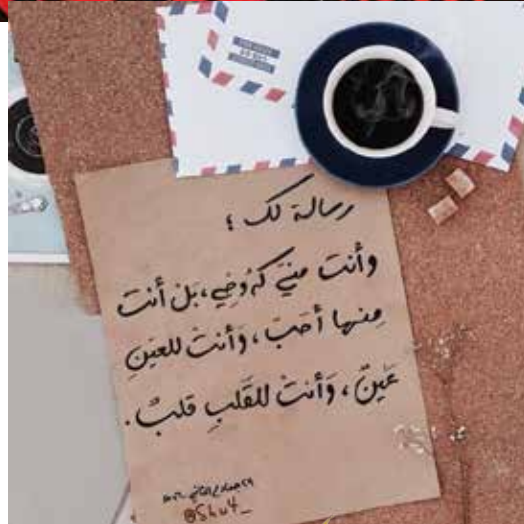 رسالة لك ؛
وأنت منّي كرُوحِي، بَل أنت
مِنها أحَبّ، وَأنتَ للعَينِ
عَينٌ، وَأنتَ للقَلبِ قلبٌ.
@Shu4_